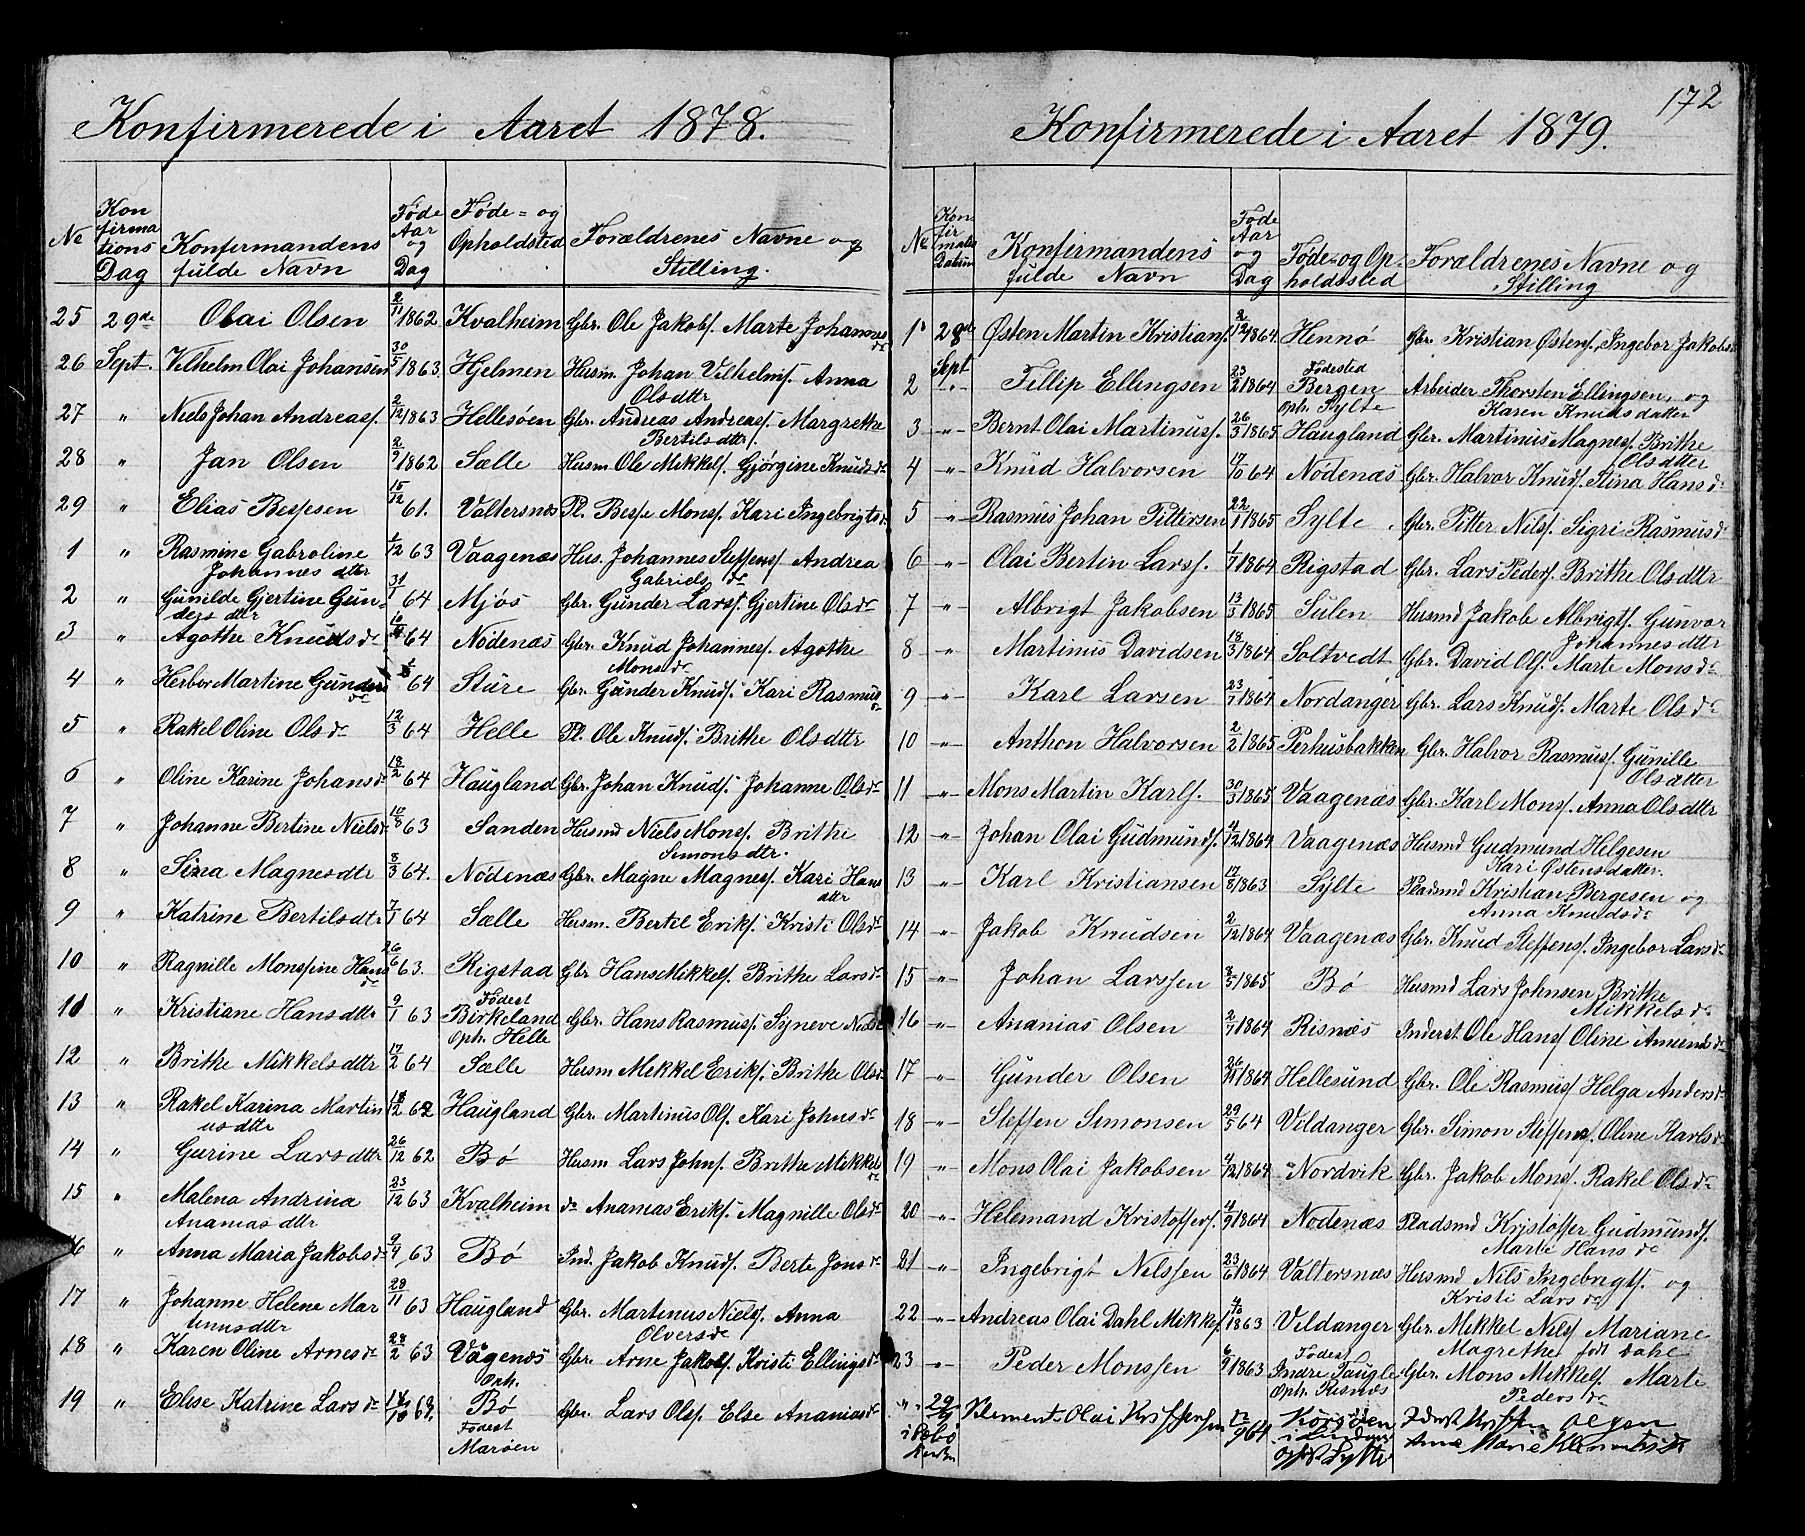 172
Konfirmerede i Aaret 1878.
No Konfirmations Dag Konfirmandens fulde Navn Føde Aar og Dag Føde- og Opholdsted Forældrenes Navne og Stilling.
25 29de Olai Olsen 2/11 1862 Kvalheim Gbr. Ole Jakobs. Marte Johannesdr
26 Sept. Vilhelm Olai Johansen 30/5 1863 Hjelmen Husm. Johan Vilhelms. Anna Olsdttr
27 " Niels Johan Andreass. 2/12 1863 Hellesøen Gbr. Andreas Andreass. Margrethe Bertilsdttr.
28 " Jan Olsen 2/9 1862 Sælle Husm Ole Mikkels. Gjørgine Knudsdr
29 " Elias Bessesen 15/12 61. Valtersnes Pl. Besse Monss. Kari Ingebrigtsdr
1 " Rasmine Gabroline Johannesdttr 1/12 63 Vaagenæs Hus. Johannes Steffens. Andrea Gabrielsdr
2 " Gunilde Gjertine Gundersdttr 31/1 64 Mjøs Gbr. Gunder Lars. Gjertine Olsdr
3 " Agothe Knudsdr 64 Nødenæs Gbr. Knud Johanness. Agothe Monsdr
4 " Herbor Martine Gundersdr 64 Sture Gbr. Gunder Knuds. Kari Rasmusdr
5 " Rakel Oline Olsdr 12/3 64 Helle Pl. Ole Knuds. Brithe Olsdttr
6 " Oline Karine Johansdr 18/2 64 Haugland Gbr. Johan Knuds. Johanne Olsdr
7 " Johanne Bertine Nielsdr 10/8 63 Sanden Husmd Niels Monss. Brithe Simonsdtr.
8 " Sina Magnesdttr 8/3 64. Nødenæs Gbr. Magne Magness. Kari Hansdttr
9 " Katrine Bertilsdttr 7/1 64 Sælle Husm. Bertil Eriks. Kristi Olsdr
10 " Ragnille Monssine Hansdr 26/6 63. Rigstad Gbr Hans Mikkels. Brithe Larsdr
11 " Kristiane Hansdttr 9/1 63 Fødest Birkeland Oph. Helle Gbr. Hans Rasmuss. Syneve Nielsdr
12 " Brithe Mikkelsdttr 17/2 64 Sælle Husm Mekkel Eriks. Brithe Olsdr
13 " Rakel Karina Martinusdttr 18/12 62 Haugland Gbr. Martinus Ols. Kari Johnsdr
14 " Gurine Larsdttr 26/12 62 Bø Husm Lars Johns. Brithe Mikkelsdr
15 " Malena Andrina Ananiasdttr 23/12 63 Kvalheim do Ananias Eriks. Magnille Olsdr
16 " Anna Maria Jakobsdr 9/4 63 Bø Ind. Jakob Knuds. Berte Jonsdr
17 " Johanne Helene Martinusdttr 28/11 63 Haugland Gbr. Martinus Niels. Anna Olversdr
18 " Karen Oline Arnesdr 28/2 63 Vågenæs Gbr. Arne Jakobs. Kristi Ellingsdr
19 " Elise Katrine Larsdr Oph. Bø Fødest Marøen Gbr. Lars Ols. Else Ananiasdr
Konfirmerede i Aaret 1879.
No Konfirmations Datum Konfirmandens fulde Navn Føde Aar og Dag Føde- og Opholdssted Forældrenes Navne og Stilling
1 28de Sept Østen Martin Kristians. 2/12 1864. Hennø Gbr. Kristian Østens. Ingebor Jakobsdr
2 " Fillip Ellingsen 23/2 1864 Fødested Bergen Oph. Sylte Arbeider Thorsten Ellingsen, og Karen Knudsdatter
3 " Bernt Olai Martinuss. 26/3 1865 Haugland Gbr. Martinus Magnes. Brithe Olsdtter
4 " Knud Halvorsen 17/10 64 Nødenæs Gbr. Halvor Knuds. Stina Hansdr
5 " Rasmus Johan Pittersen 22/1 1865 Sylte Gbr. Pitter Nils. Sigri Rasmusdr
6 " Olai Bertin Larss. 1/7 1864 Rigstad Gbr. Lars Peders. Brithe Olsdttr
7 " Albrigt Jakobsen 13/3 1865 Sulen Husmd Jakob Albrigts. Gunvor Johannesdttr
8 " Martinus Davidsen 18/3 1864 Soltvedt Gbr. David Ols. Marte Monsdr
9 " Karl Larsen 23/7 1864 Nordanger Gbr. Lars Knuds. Marte Olsdr
10 " Anthon Halvorsen 2/2 1865 Perhusbakken Gbr. Halvor Rasmuss. Gunille Olsdtter
11 " Mons Martin Karls. 30/3 1865 Vaagenæs Gbr. Karl Monss. Anna Olsdttr
12 " Johan Olai Gudmunds. 4/12 1864 Vaagenæs Husmd Gudmund Helgesen Kari Østensdatter.
13 " Karl Kristiansen 12/8 1863 Sylte Pladsmd Kristian Bergesen og Anna Knudsdr
14 " Jakob Knudsen 2/12 1864 Vaagenæs Gbr. Knud Steffens. Ingebor Larsdr
15 " Johan Larssen 8/5 1865 Bø Husmd Lars Johnsen Brithe Mikkelsdr
16 " Ananias Olsen 2/7 1864 Risnæs Inderst Ole Hans. Oline Amundsdr
17 " Gunder Olsen 26/11 1864 Hellesund Gbr. Ole Rasmus. Helga Andersdr
18 " Steffen Simonsen 29/5 64 Vildanger Gbr. Simon Steffens. Oline Karlsdr
19 " Mons Olai Jakobsen 4/12 1864 Nordvik Gbr. Jakob Monss. Rakel Olsdr
20 " Helemand Kristoffers. 4/9 1864 Nødenæs Pladsmd Kristoffer Gudmunds. Marte Hansdr
21 " Ingebrigt Nilssen 23/6 1864 Valtersnæs Husmd Nils Ingebrigts. og Kristi Larsdr
22 " Andreas Olai Dahl Mikkels. 4/10 1863 Vildanger Gbr. Mikkel Nils. Mariane Magrethe født Dahl
23 " Peder Monssen 6/9 1863 Fødest Indre Taugle Oph. Risnæs Gbr. Mons Mikkels. Marte Pedersdr
" 29/9 i Sæbø Klement Olai 64 i Lindaas Opht Sylte Olsen Ane Marie Klementsdr